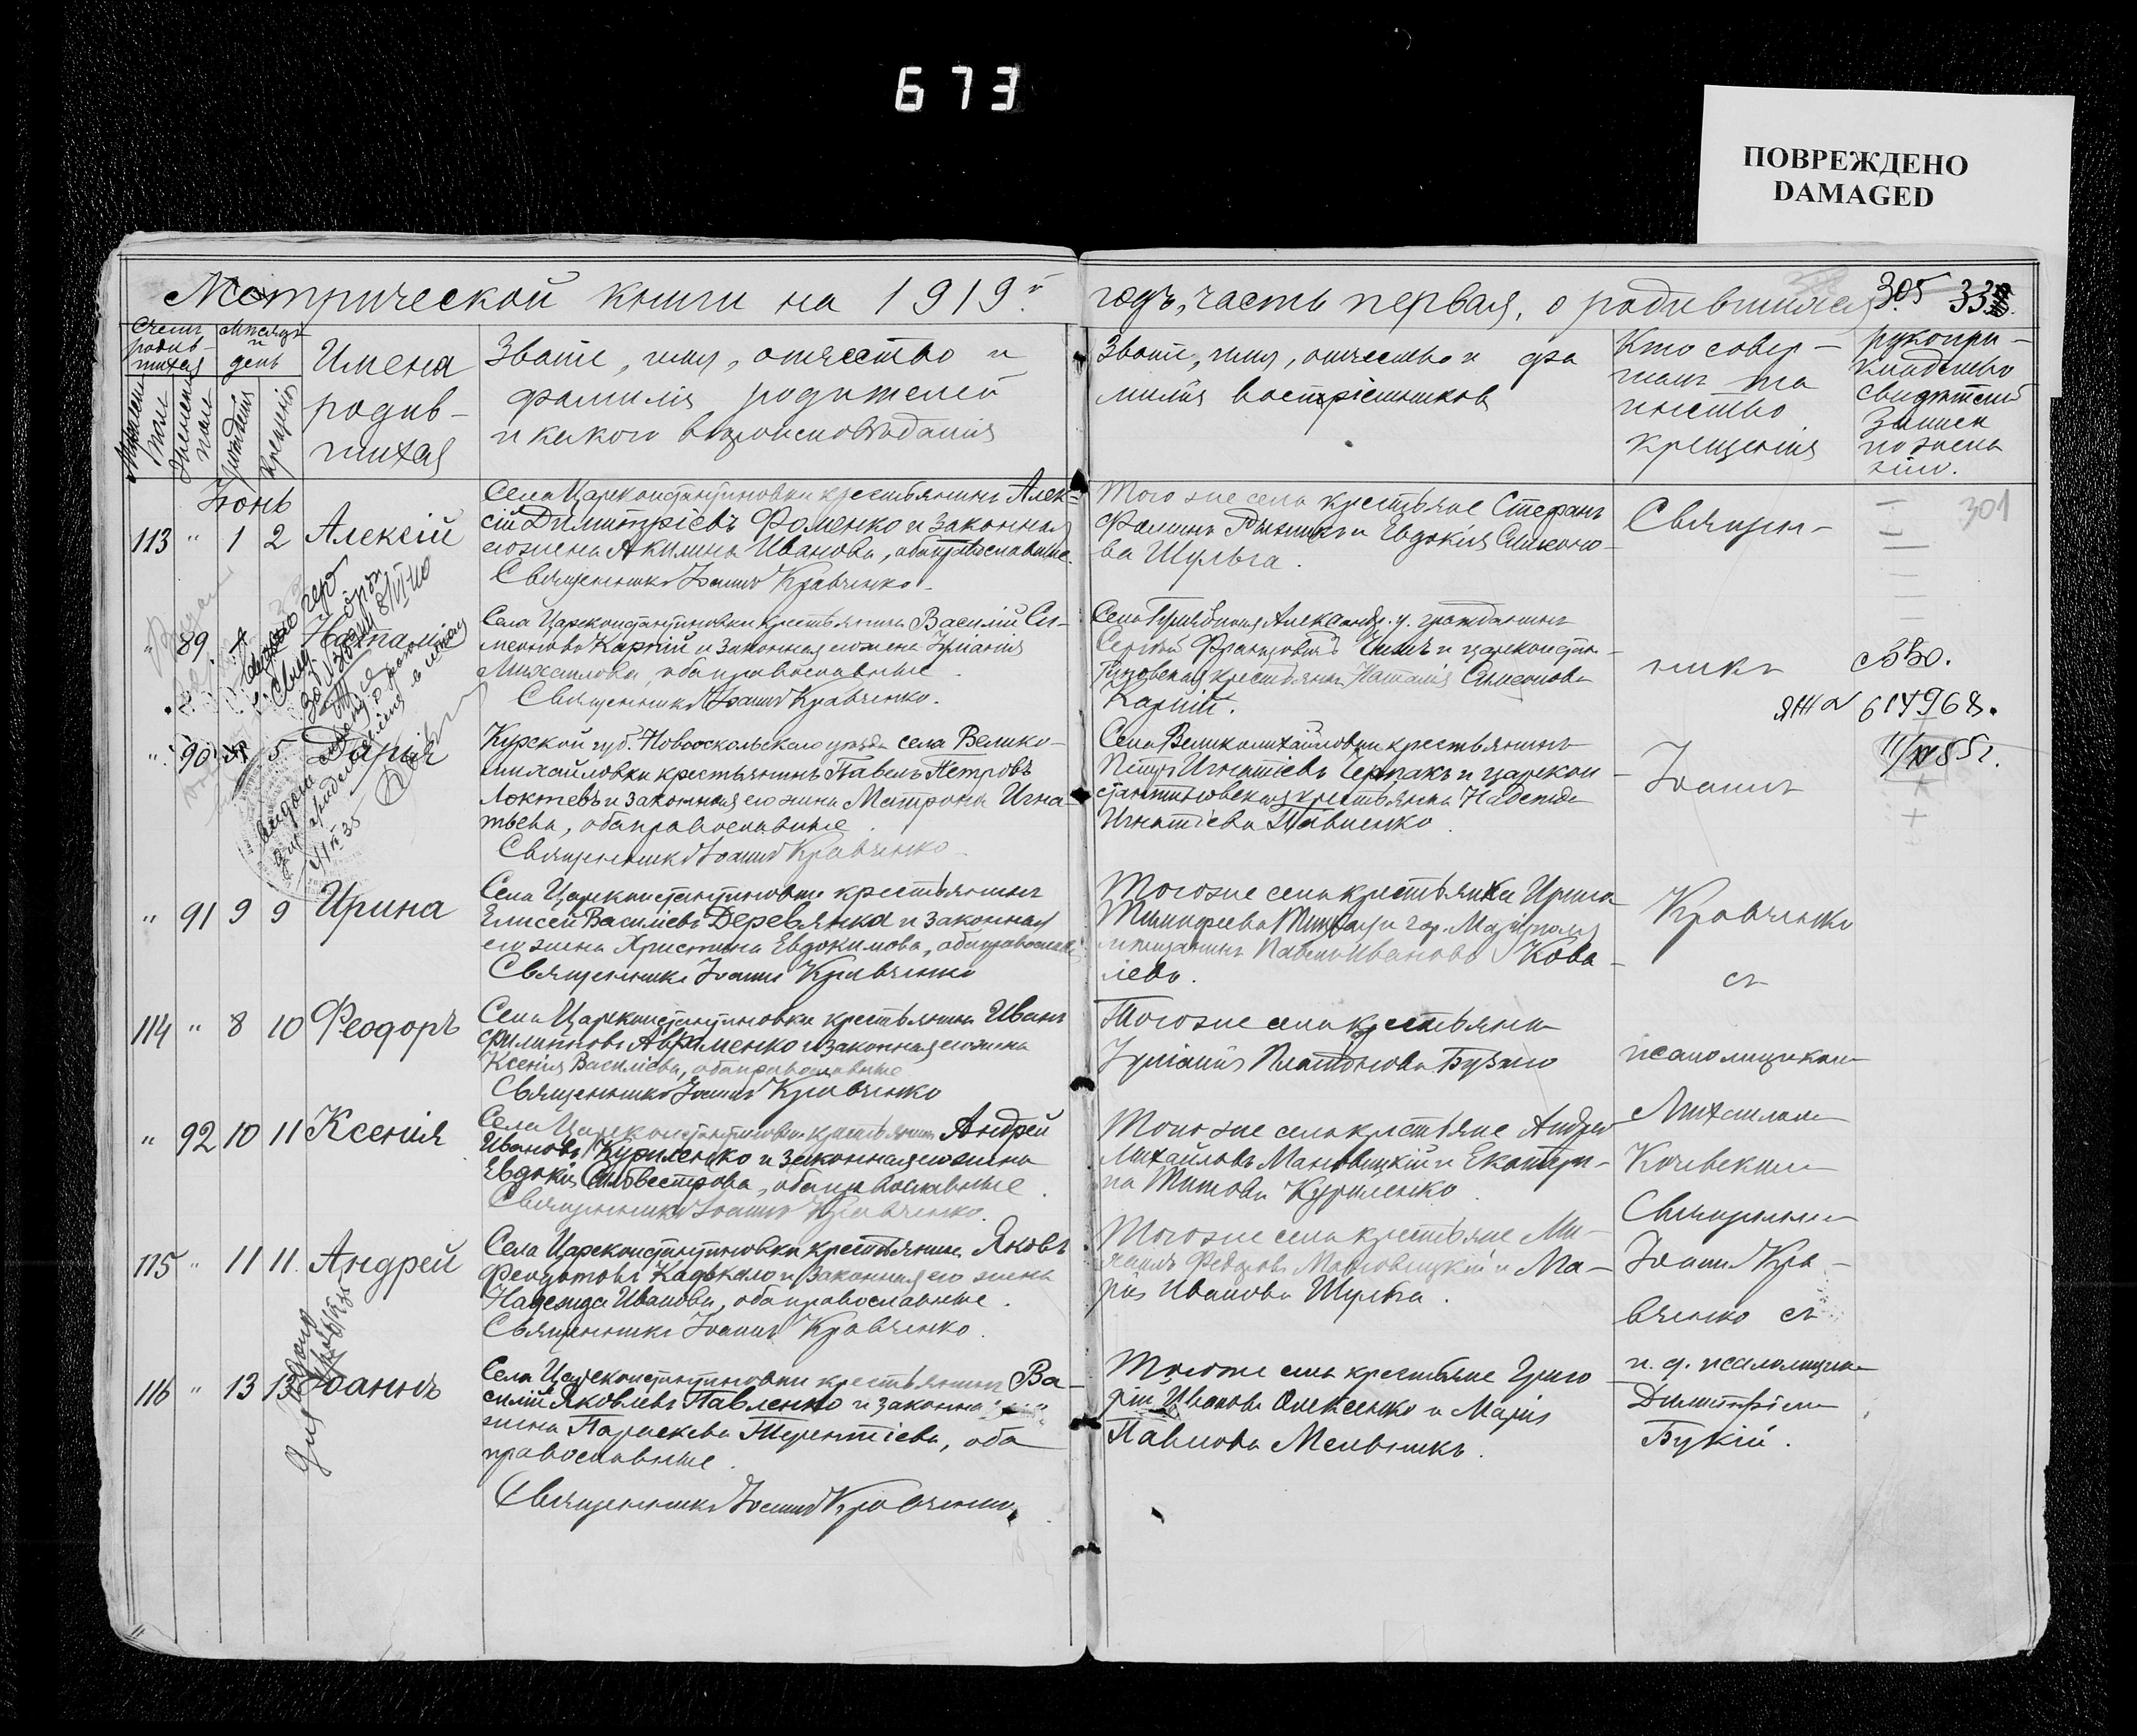 673
ПОВРЕЖДЕНО
DAMAGED
Метрической книги на 1919й
годъ, часть первая, о родившихся.
305 33
Счетъ родившихся
Мѣсяцъ и день
Мужеск. пола
Женска пола
рожденія
крещенія
Имена
родив-
шихся
Званіе, имя, отчество и
фамилія родителей
и какого вѣроисповѣданія
Званіе, имя, отчество и фа
милія воспріемниковъ
Кто совер-
шалъ та
инство
крещенія
рукопри-
кладство
свидѣтелей
записи
по жела
нію.
301
Іюнь
113 " 1 2 Алексій
Села Цареконстантиновки крестьянинъ Алек-
сій Димитріевъ Фоменко и законная
его жена Акилина Иванова, оба православные.
Священникъ Іоаннъ Кравченко.
Того же села крестьяне Стефанъ
Фоминъ и Евдокія
ва Шульга.
Священ-
" 89 Наталія
Села Цареконстантиновки крестьянинъ Василій Си-
меоновъ Карпій и законная его жена Іуліанія
Михаилова, оба православные.
Священникъ Іоаннъ Кравченко.
Села Александр. у. гражданинъ
Сергѣй Францовичъ и цареконстан-
тиновская крестьянка Наталія Симеонова
Карпій.
никъ
614968.
11/ 55г.
" 90 5 Дарія
Курской губ. Новооскольскаго уѣзда села Велико-
михайловки крестьянинъ Павелъ Петровъ
Локтевъ и законная его жена Матрона Игна-
тьева, оба православные.
Священникъ Іоаннъ Кравченко
Села Великомихайловки крестьянинъ
Петръ Игнатіевъ Чермакъ и царекон-
стантиновская крестьянка Надежда
Игнатіева Павленко.
Іоаннъ
" 91 9 9 Ирина
Села Цареконстантиновки крестьянинъ
Елисей Василіевъ Деревянка и законная
его жена Христина Евдокимова, оба православные
Священникъ Іоаннъ Кравченко
Того же села крестьянка Ирина
Тимофеева и гор. Маріуполя
мѣщанинъ Павелъ Ивановъ Кова-
левъ.
Кравченко
съ
114 " 8 10 Феодоръ
Села Цареконстантиновки крестьянинъ Иванъ
Филипповъ Авраменко и законная его жена
Ксенія Василіева, оба православные
Священникъ Іоаннъ Кравченко
Того же села крестьянка
Іуліанія Платонова
псаломщикомъ
" 92 10 11 Ксенія
Села Цареконстантиновки крестьянинъ Андрей
Ивановъ Куриленко и законная его жена
Евдокія Силвестрова, оба православные.
Священникъ Іоаннъ Кравченко.
Того же села крестьяне Андрей
Михайловъ Мановицкій и Екатери-
на Титова Куриленко.
Михаиломъ
115 " 11 11 Андрей
Села Цареконстантиновки крестьянинъ Яковъ
Феодотовъ Кадькало и законная его жена
Надежда Иванова, оба православные.
Священникъ Іоаннъ Кравченко.
Того же села крестьяне Ми-
хаилъ Федоровъ Мановицкій и Ма-
рія Иванова Шульга.
Священникъ
Іоаннъ Кра-
вченко съ
116 " 13 13 Іоаннъ
Села Цареконстантиновки крестьянинъ Ва-
силій Яковлевъ Павленко и законная
жена Параскева Терентіева, оба
православные.
Священникъ Іоаннъ Кравченко.
Того же села крестьяне Григо
рій Ивановъ Олексенко и Марія
Павлова Мельникъ.
и. д. псаломщика
Димитріемъ
Буткій.